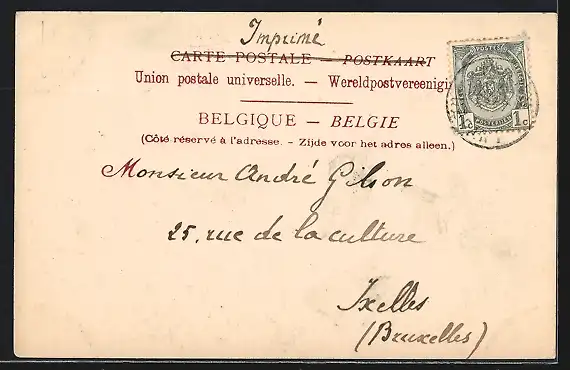 Imprimé
CARTE POSTALE — POSTKAART
Union postale universelle. — Wereldpostvereenigi
BELGIQUE — BELGIE
(Côté réservé à l'adresse. - Zijde voor het adres alleen.)
1c 1c
Monsieur André Gilson
25, rue de la culture
Ixelles
(Bruxelles)